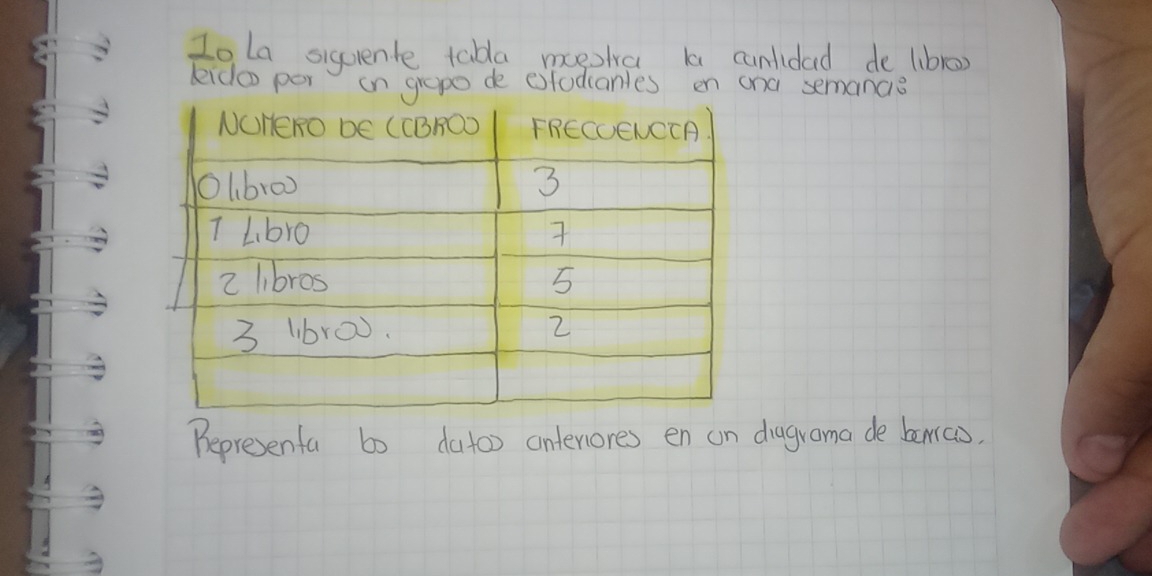 1o La siguiente tabla muestra la cantidad de libros
leidos por un grupo de estudiantes en una semana:
NUMERO DE LIBROS FRECUENCIA.
0 libros 3
1 Libro 7
2 libros 5
3 libros. 2
Representa los datos anteriores en un diagrama de barras.